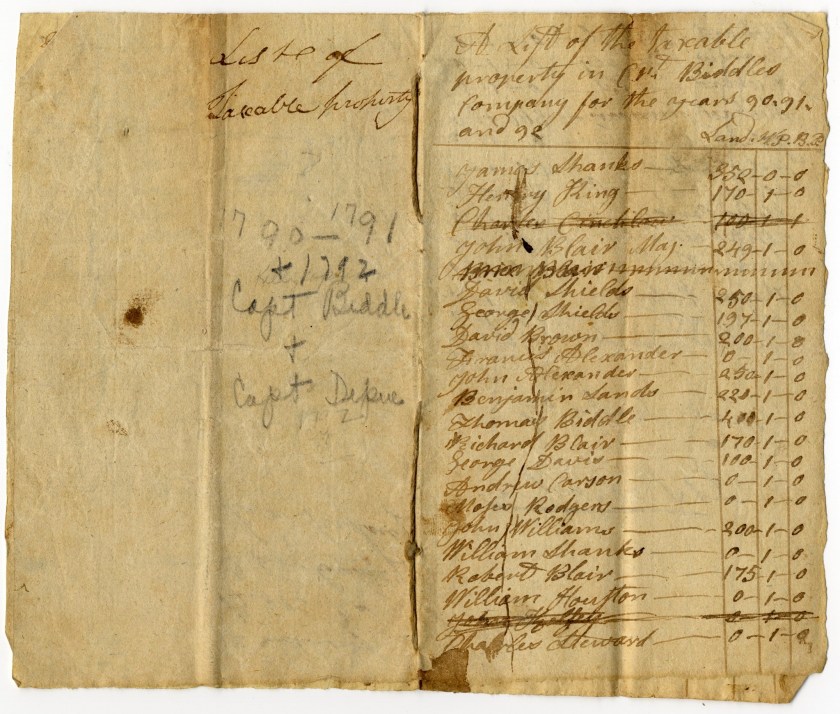 Liste of
Taxable property
1790-1791
+ 1792
Capt Biddle
+
Capt Depue
A List of the taxable
property in Cpt Biddles
Company for the years 90.91.
and 92
Land. W.P. B.P.
James Shanks 350-0-0
Henry King 170-1-0
Charles 100-1-1
John Blair Maj. 249-1-0
Blair
David Shields 250-1-0
George Shields 197-1-0
David Brown 200-1-0
Francis Alexander 0-1-0
John Alexander 250-1-0
Benjamin Sands 220-1-0
Thomas Biddle 400-1-0
Richard Blair 170-1-0
George Davis 100-1-0
Andrew Carson 0-1-0
Moses Rodgers 0-1-0
John Williams 200-1-0
William Shanks 0-1-0
Robert Blair 175-1-0
William Houston 0-1-0
John 0-1-0
Charles Steward 0-1-0